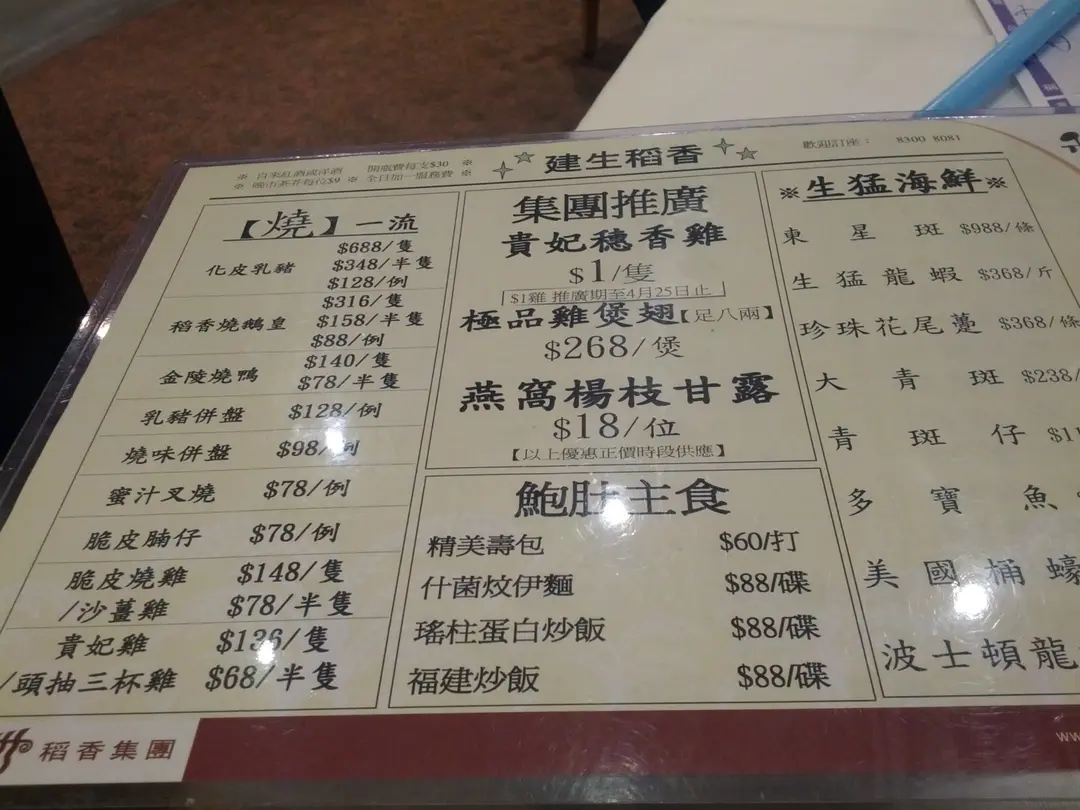 ※ 自來紅酒或洋酒 開瓶費每支$30 ※
※ 晚市茶芥每位$9 ※ 全日加一服務費 ※
建生稻香
歡迎訂座： 8300 8081
【燒】一流
化皮乳豬
$688/隻
$348/半隻
$128/例
稻香燒鵝皇
$316/隻
$158/半隻
$88/例
金陵燒鴨
$140/隻
$78/半隻
乳豬併盤 $128/例
燒味併盤 $98/例
蜜汁叉燒 $78/例
脆皮腩仔 $78/例
脆皮燒雞 $148/隻
/沙薑雞 $78/半隻
貴妃雞 $136/隻
/頭抽三杯雞 $68/半隻
集團推廣
貴妃穗香雞
$1/隻
$1雞 推廣期至4月25日止
極品雞煲翅【足八兩】
$268/煲
燕窩楊枝甘露
$18/位
【以上優惠正價時段供應】
鮑肚主食
精美壽包 $60/打
什菌炆伊麵 $88/碟
瑤柱蛋白炒飯 $88/碟
福建炒飯 $88/碟
※生猛海鮮※
東星斑 $988/條
生猛龍蝦 $368/斤
珍珠花尾躉 $368/條
大青斑 $238/
青斑仔
多寶魚
美國桶蠔
波士頓龍
稻香集團